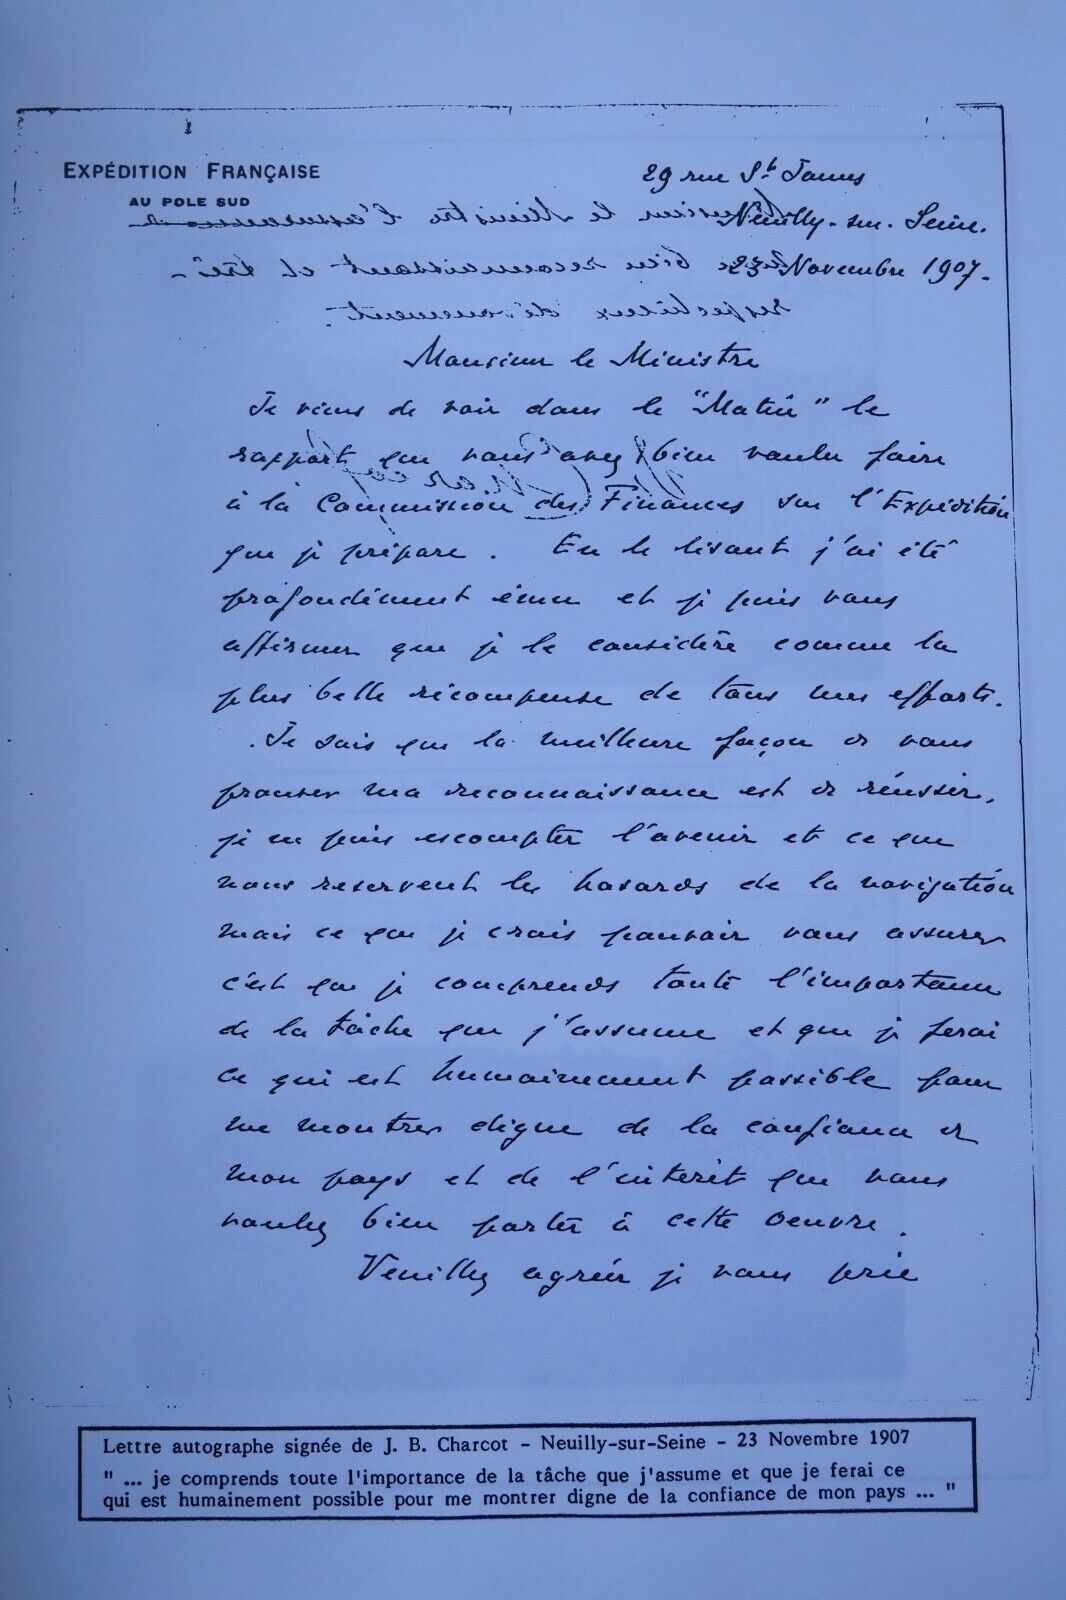 EXPÉDITION FRANÇAISE
AU POLE SUD
29 rue St James
Neuilly-sur-Seine.
23 Novembre 1907-
Monsieur le Ministre
Je viens de voir dans le "Matin" le
rapport que vous avez bien voulu faire
à la Commission des Finances sur l'Expédition
que je prépare. En le lisant j'ai été
profondément ému et je puis vous
affirmer que je le considère comme la
plus belle récompense de tous mes efforts.
Je sais que la meilleure façon de vous
prouver ma reconnaissance est de réussir,
je ne puis escompter l'avenir et ce que
nous reservent les hasards de la navigation
mais ce que je crois pouvoir vous assurer
c'est que je comprends toute l'importance
de la tâche que j'assume et que je ferai
ce qui est humainement possible pour
me montrer digne de la confiance de
mon pays et de l'interêt que vous
voulez bien porter à cette oeuvre.
Veuillez agréer je vous prie
Lettre autographe signée de J. B. Charcot - Neuilly-sur-Seine - 23 Novembre 1907
" ... je comprends toute l'importance de la tâche que j'assume et que je ferai ce
qui est humainement possible pour me montrer digne de la confiance de mon pays ... "